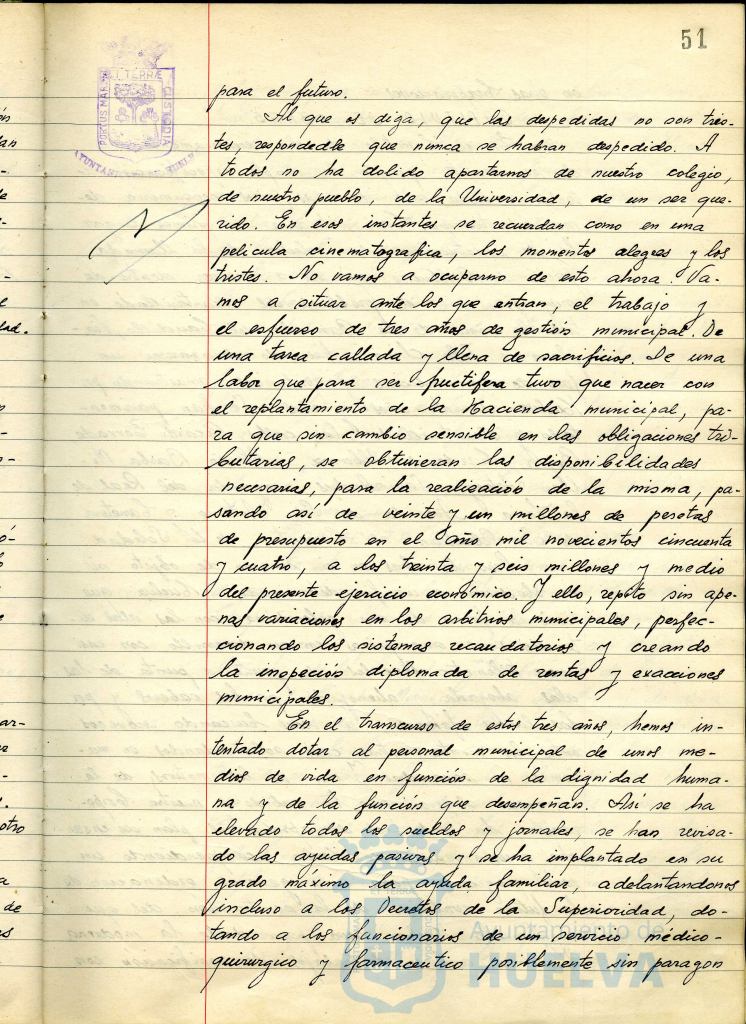 51
PORTUS MARIS ET TERRÆ CUSTODIA
AYUNTAMIENTO DE HUELVA
para el futuro.
Al que os diga, que las despedidas no son tris-
tes, respondedle que nunca se habran despedido. A
todos no ha dolido apartarnos de nuestro colegio,
de nuestro pueblo, de la Universidad, de un ser que-
rido. En esos instantes se recuerdan como en una
pelicula cinematografica, los momentos alegres y los
tristes. No vamos a ocuparno de esto ahora. Va-
mos a situar ante los que entran, el trabajo y
el esfuerzo de tres años de gestión municipal. De
una tarea callada y llena de sacrificios. De una
labor que para ser fructifera tuvo que nacer con
el replantamiento de la Hacienda municipal, pa-
ra que sin cambio sensible en las obligaciones tri-
butarias, se obtuvieran las disponibilidades
necesarias, para la realización de la misma, pa-
sando así de veinte y un millones de pesetas
de presupuesto en el año mil novecientos cincuenta
y cuatro, a los treinta y seis millones y medio
del presente ejercicio económico. Y ello, repito sin ape-
nas variaciones en los arbitrios municipales, perfec-
cionando los sistemas recaudatorios y creando
la inspeción diplomada de rentas y exacciones
municipales.
En el transcurso de estos tres años, hemos in-
tentado dotar al personal municipal de unos me-
dios de vida en función de la dignidad huma-
na y de la función que desempeñan. Así se ha
elevado todos los sueldos y jornales, se han revisa-
do las ayudas pasivas y se ha implantado en su
grado máximo la ayuda familiar, adelantandonos
incluso a los Decretos de la Superioridad, do-
tando a los funcionarios de un servicio médico-
quirurgico y farmaceutico posiblemente sin paragon
Ayuntamiento de
HUELVA